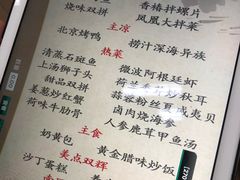 烧味双拼
香椿拌螺片
凤凰大拌菜
主凉
北京烤鸭
捞汁深海异族
热菜
清蒸石斑鱼
上汤狮子头
甜品双拼
姜葱炒红蟹
荷味牛肋骨
微波阿根廷虾
荷兰 炒秋耳
蒜蓉粉丝夏威夷贝
卤肉烧海参
人参鹿茸甲鱼汤
主食
奶黄包
黄金腊味炒饭
美点双辉
沙丁蛋糕